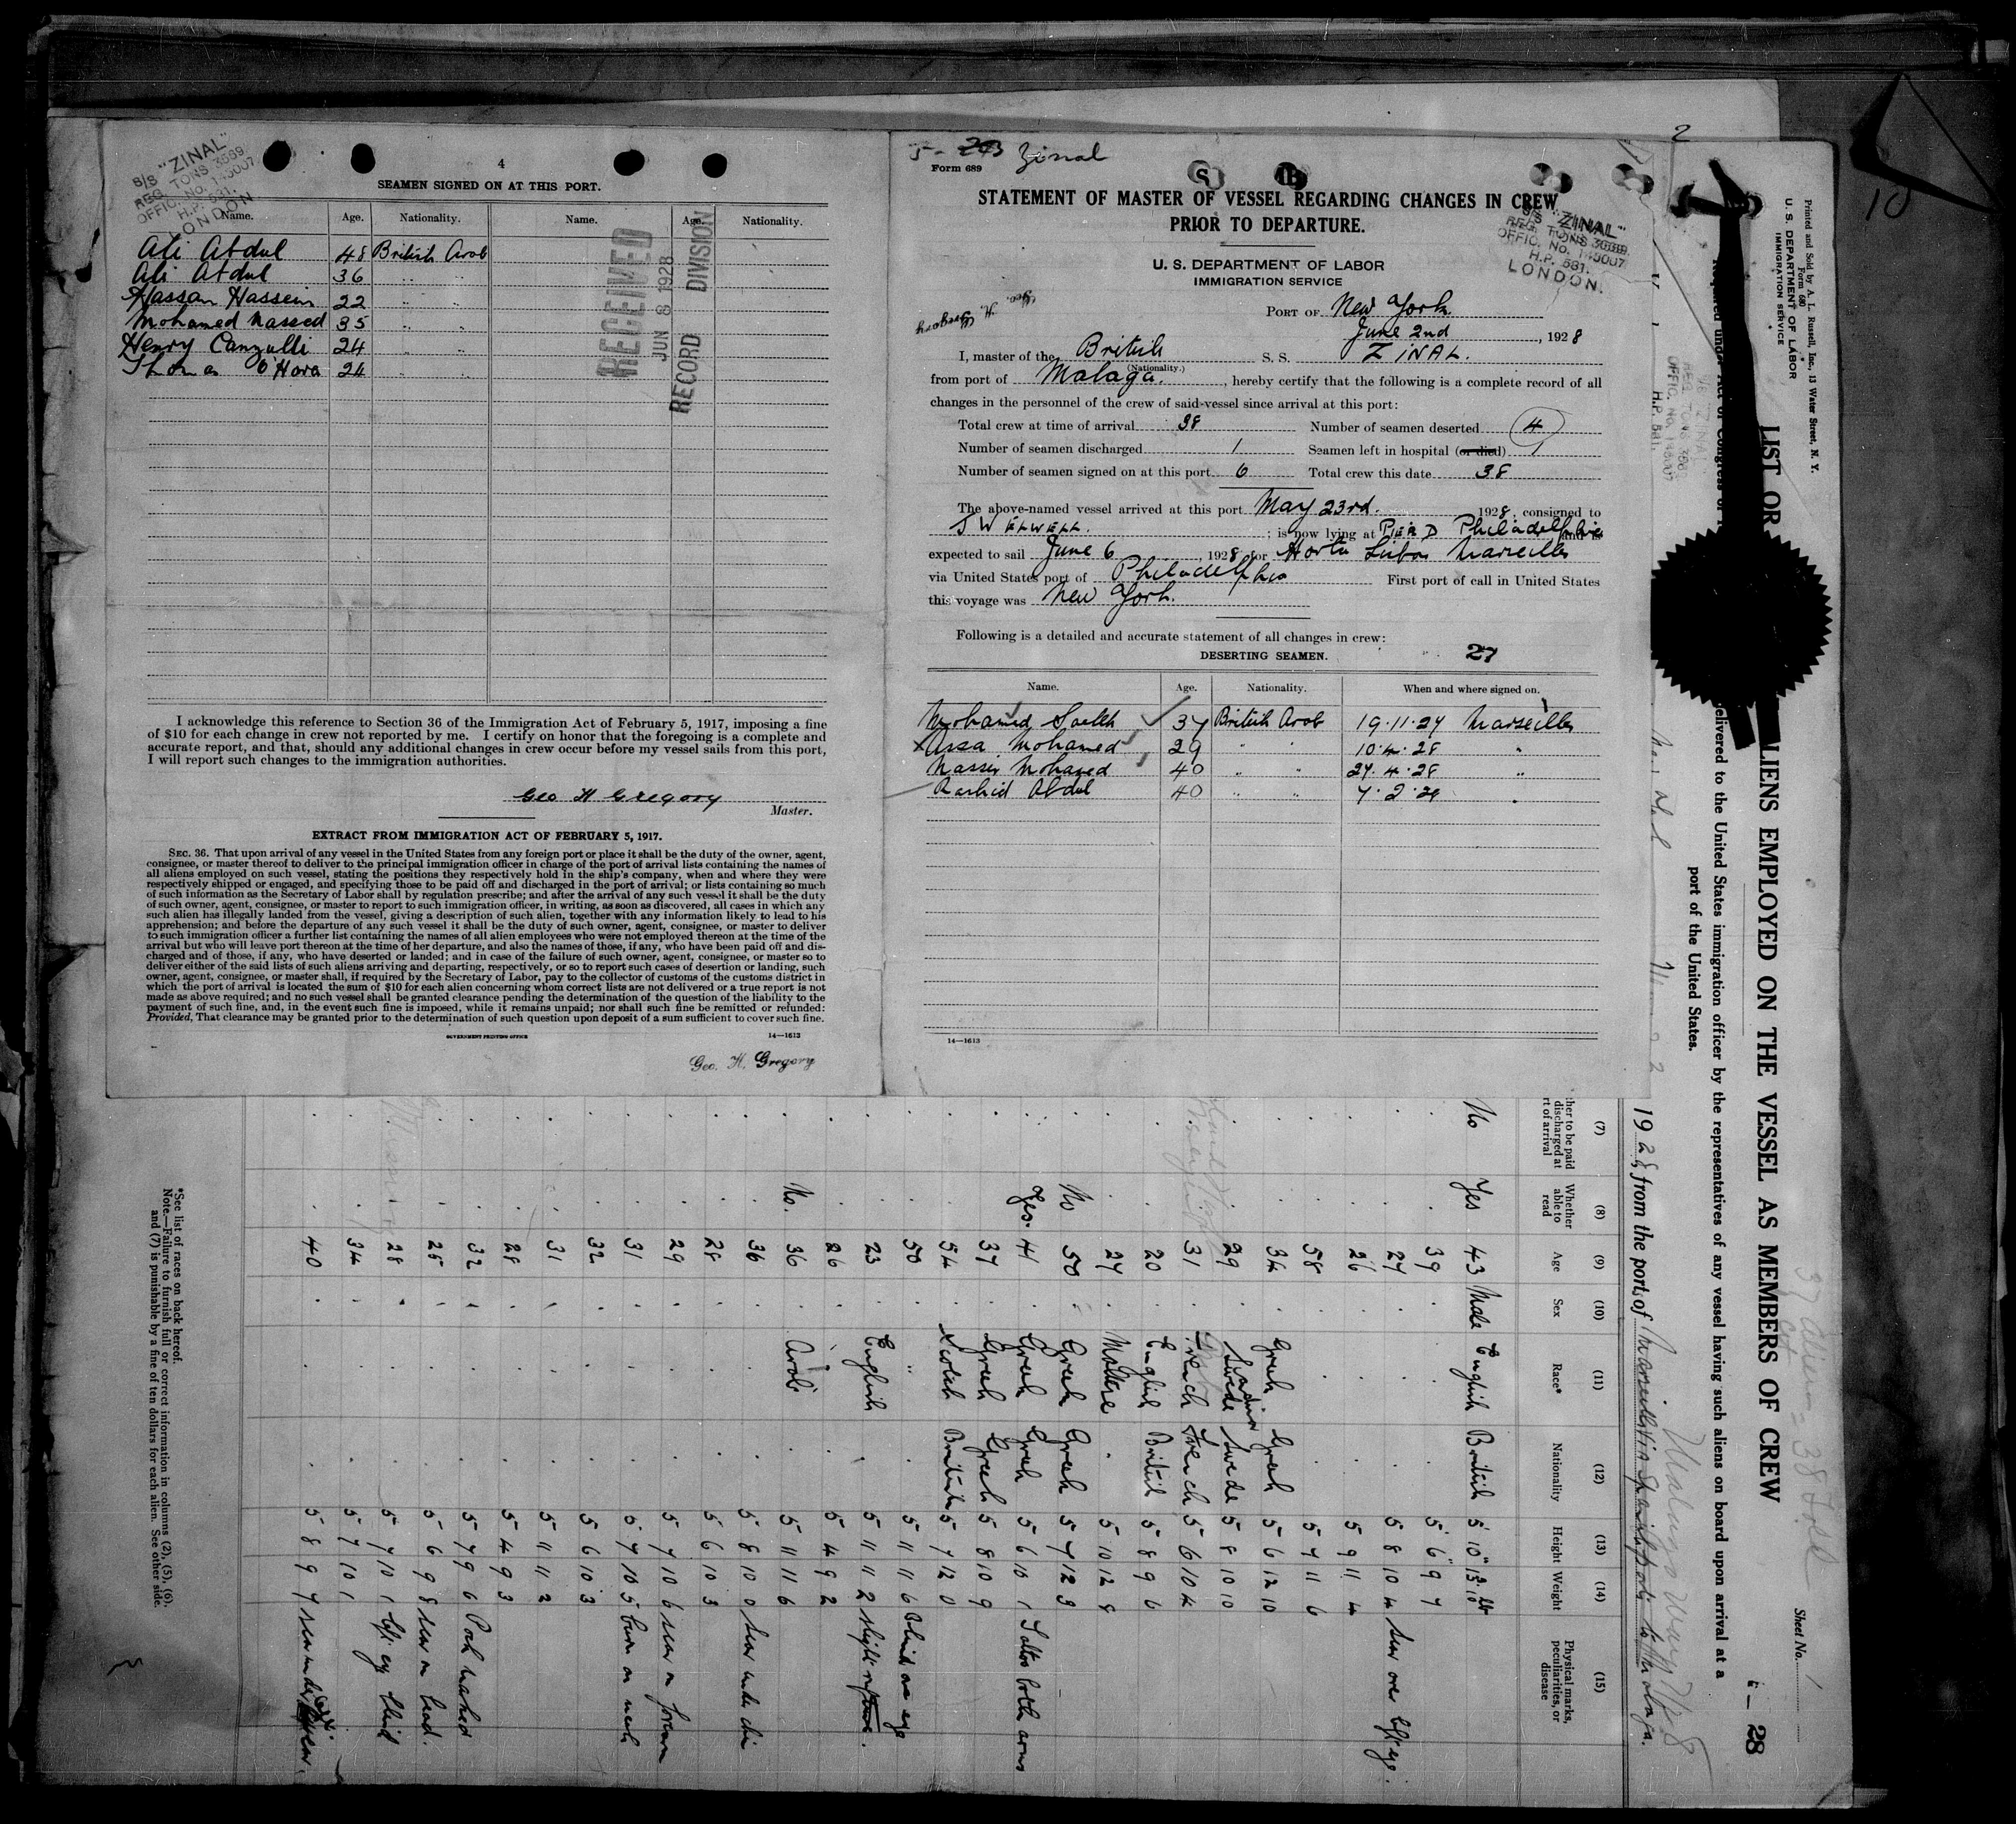 S/S "ZINAL"
REG. TONS 3569.
OFFIC. No. 145007
H.P. 531.
LONDON
4
SEAMEN SIGNED ON AT THIS PORT.
Name. Age. Nationality. Name. Age. Nationality.
Ali Abdul 48 British Arab
Ali Abdul 36 " "
Hassan Hassein 22 " "
Mohamed Nassed 35 " "
Henry Canzulli 24 " "
Thomas O'Hara 24 " "
RECEIVED
JUN 8 1928
RECORD DIVISION
I acknowledge this reference to Section 36 of the Immigration Act of February 5, 1917, imposing a fine
of $10 for each change in crew not reported by me. I certify on honor that the foregoing is a complete and
accurate report, and that, should any additional changes in crew occur before my vessel sails from this port,
I will report such changes to the immigration authorities.
Geo H Gregory
Master.
EXTRACT FROM IMMIGRATION ACT OF FEBRUARY 5, 1917.
SEC. 36. That upon arrival of any vessel in the United States from any foreign port or place it shall be the duty of the owner, agent,
consignee, or master thereof to deliver to the principal immigration officer in charge of the port of arrival lists containing the names of
all aliens employed on such vessel, stating the positions they respectively hold in the ship's company, when and where they were
respectively shipped or engaged, and specifying those to be paid off and discharged in the port of arrival; or lists containing so much
of such information as the Secretary of Labor shall by regulation prescribe; and after the arrival of any such vessel it shall be the duty
of such owner, agent, consignee, or master to report to such immigration officer, in writing, as soon as discovered, all cases in which any
such alien has illegally landed from the vessel, giving a description of such alien, together with any information likely to lead to his
apprehension; and before the departure of any such vessel it shall be the duty of such owner, agent, consignee, or master to deliver
to such immigration officer a further list containing the names of all alien employees who were not employed thereon at the time of the
arrival but who will leave port thereon at the time of her departure, and also the names of those, if any, who have been paid off and dis-
charged and of those, if any, who have deserted or landed; and in case of the failure of such owner, agent, consignee, or master so to
deliver either of the said lists of such aliens arriving and departing, respectively, or so to report such cases of desertion or landing, such
owner, agent, consignee, or master shall, if required by the Secretary of Labor, pay to the collector of customs of the customs district in
which the port of arrival is located the sum of $10 for each alien concerning whom correct lists are not delivered or a true report is not
made as above required; and no such vessel shall be granted clearance pending the determination of the question of the liability to the
payment of such fine, and, in the event such fine is imposed, while it remains unpaid; nor shall such fine be remitted or refunded:
Provided, That clearance may be granted prior to the determination of such question upon deposit of a sum sufficient to cover such fine.
GOVERNMENT PRINTING OFFICE
14—1613
Geo. H. Gregory
Zinal
Form 689
STATEMENT OF MASTER OF VESSEL REGARDING CHANGES IN CREW
PRIOR TO DEPARTURE.
S/S "ZINAL"
REG. TONS 3569.
OFFIC. No. 145007
H.P. 531.
LONDON.
U. S. DEPARTMENT OF LABOR
IMMIGRATION SERVICE
Geo. H. Gregory
PORT OF New York
June 2nd, 1928
I, master of the British S. S. ZINAL.
(Nationality.)
from port of Malaga., hereby certify that the following is a complete record of all
changes in the personnel of the crew of said vessel since arrival at this port:
Total crew at time of arrival 38 Number of seamen deserted 4
Number of seamen discharged 1 Seamen left in hospital (or died) 1
Number of seamen signed on at this port 6 Total crew this date 38
The above-named vessel arrived at this port May 23rd. 1928, consigned to
J W ELWELL.; is now lying at PIER D Philadelphia and is
expected to sail June 6, 1928, for Horta Lisbon Marseilles
via United States port of Philadelphia First port of call in United States
this voyage was New York.
Following is a detailed and accurate statement of all changes in crew:
DESERTING SEAMEN.
27
Name. Age. Nationality. When and where signed on.
Mohamed Saleh 37 British Arab 19.11.27 Marseilles
Assa Mohamed 29 " " 10.4.28 "
Nasser Mohamed 40 " " 27.4.28 "
Rashid Abdul 40 " " 7.2.28 "
14—1613
2
10
Printed and Sold by A. L. Russell, Inc., 13 Water Street, N. Y.
Form 680
U. S. DEPARTMENT OF LABOR
IMMIGRATION SERVICE
Sheet No. 1
LIST OR
LIENS EMPLOYED ON THE VESSEL AS MEMBERS OF CREW
28
elivered to the United States immigration officer by the representatives of any vessel having such aliens on board upon arrival at a
port of the United States.
1928, from the port of Marseilles Spanish ports to Malaga.
(7) (8) (9) (10) (11) (12) (13) (14) (15)
her to be paid
discharged at
rt of arrival
Whether
able to
read
Age Sex Race* Nationality Height Weight
Physical marks,
peculiarities, or
disease
No Yes 43 Male English British 5 10
39 5 6 9 7
27 5 8 10 4 Scar over left eye.
26 5 9 11 4
58 5 7 11 6
34 Greek Greek 5 6 12 10
29 Swede Swede 5 8 10 10
31 French French 5 6 10 4
20 English British 5 8 9 6
27 Maltese 5 10 12 8
No 50 Greek Greek 5 7 12 3
Yes. 41 Greek Greek 5 6 10 1 Tattoo both arms
37 Greek Greek 5 8 10 9
54 Scotch British 5 7 12 0
50 " 5 11 11 6 Blind one eye
23 English 5 11 11 2 slight rupture.
26 5 4 9 2
No. 36 Arab 5 11 11 6
36 5 8 10 0 Scar under chin
28 5 6 10 3
29 5 7 10 6 scar on forearm
31 5 7 10 5 burn on neck
32 5 6 10 3
31 5 11 11 2
28 5 4 9 3
32 5 7 9 6 Pock marked
25 5 6 9 8 Scar on head.
28 5 7 10 1 left eye blind
34 5 7 10 1
40 5 8 9 7 scar under
*See list of races on back hereof.
Note.—Failure to furnish full or correct information in columns (2), (5), (6),
and (7) is punishable by a fine of ten dollars for each alien. See other side.